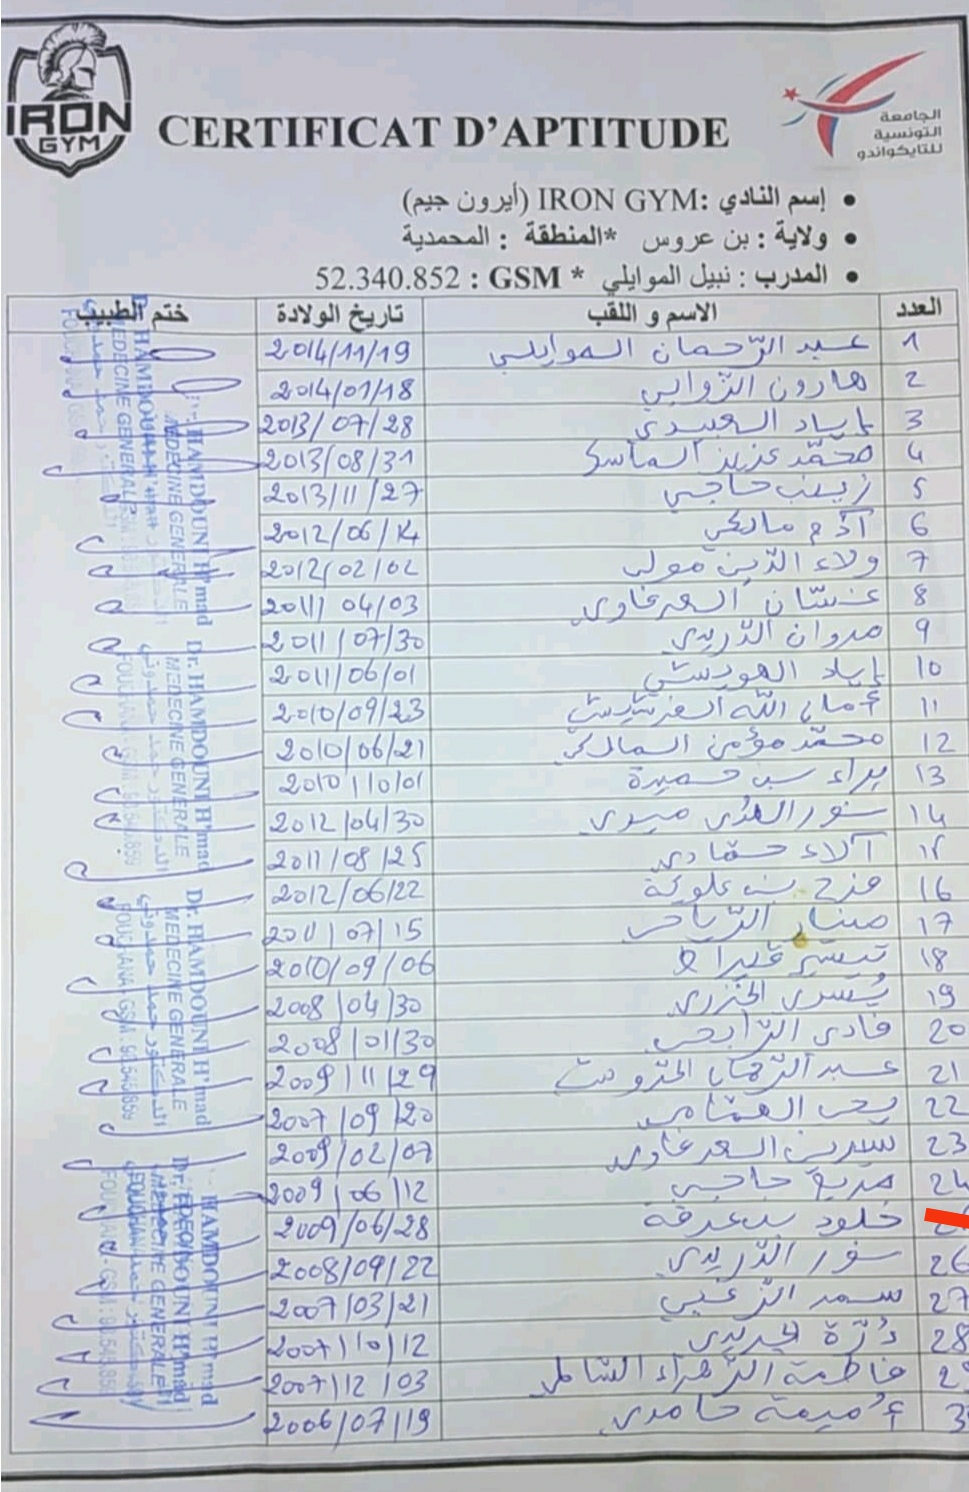 IRON
GYM
CERTIFICAT D'APTITUDE
الجامعة
التونسية
للتايكواندو
إسم النادي :IRON GYM (أيرون جيم)
ولاية : بن عروس *المنطقة : المحمدية
المدرب : نبيل الموايلي * GSM : 52.340.852
العدد الاسم و اللقب تاريخ الولادة ختم الطبيب
1 عبد الرّحمان الموايلي 2014/11/19
2 هارون الزّوابي 2014/01/18
3 إياد العبيدي 2013/07/28
4 محمّد عزيز الماسي 2013/08/31
5 زينب حاجي 2013/11/27
6 آدم مالكي 2012/06/14
7 ولاء الدّين مولى 2012/02/02
8 غسّان السعرغاوي 2011/04/03
9 مروان الدّريدي 2011/07/30
10 إياد 2011/06/01
11 أمان الله 2010/09/23
12 محمّد مؤمن المالكي 2010/06/21
13 براء بن حميدة 2010/10/01
14 نور الهدى ميري 2012/04/30
15 آلاء حمّادي 2011/08/25
16 فرح بن علوكة 2012/06/22
17 منار الرّياحي 2011/07/15
18 تيسير قيراط 2010/09/06
19 يُسرى الخزري 2008/04/30
20 فادي الرّابحي 2008/01/30
21 عبد الرّحمان 2009/11/29
22 يحي العثماني 2007/09/20
23 سيرين السعرغاوي 2009/02/07
24 مريم حاجي 2009/06/12
خلود بن عرفة 2009/06/28
26 نور الدّريدي 2008/09/22
27 سمر الزّغبي 2007/03/21
28 دُرّة الجريدي 2007/10/12
2 فاطمة الزّهراء الشّاطر 2007/12/03
3 أُميمة حامدي 2006/07/19
Dr. HAMDOUNI H'mad
MEDECINE GENERALE
الدكتور حمد حمدوني
FOUCHANA GSM: 98.546.859
Dr. HAMDOUNI H'mad
MEDECINE GENERALE
Dr. HAMDOUNI H'mad
MEDECINE GENERALE
الدكتور حمد حمدوني
FOUCHANA GSM: 98.546.859
Dr. HAMDOUNI H'mad
MEDECINE GENERALE